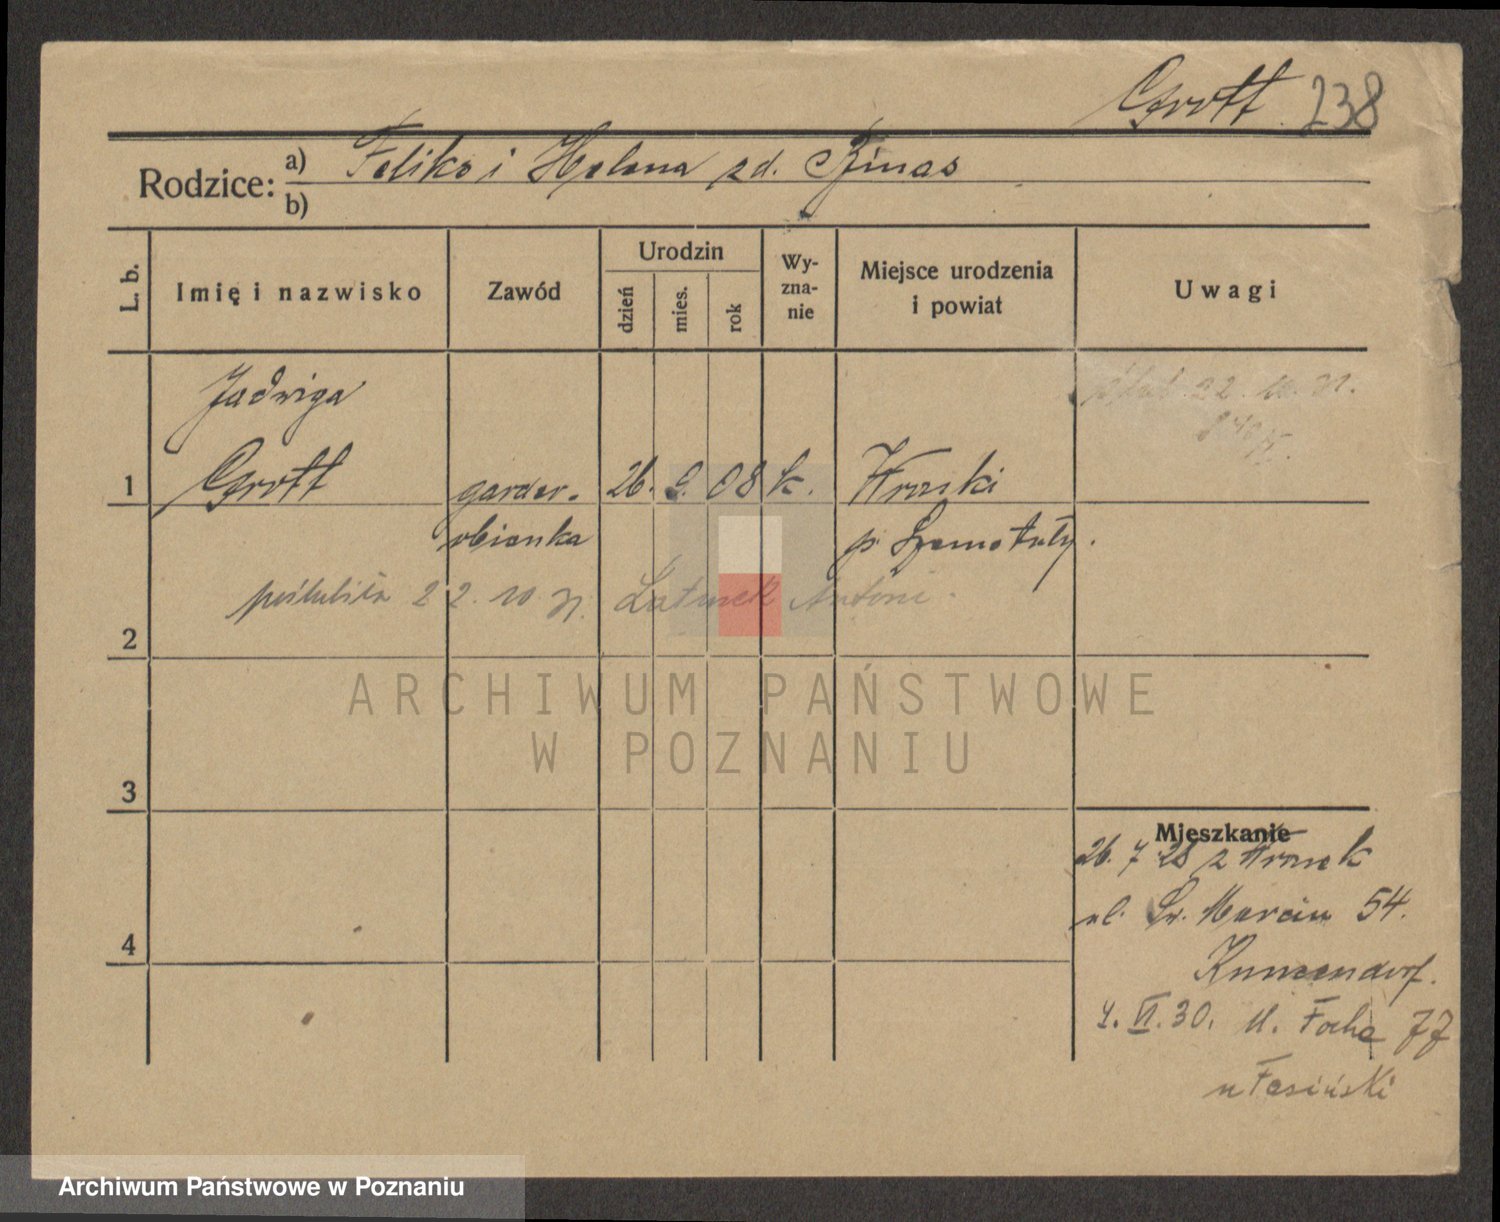 Grott 238
Rodzice: a) Feliks i Helena zd. Binas
b)
L. b.
Imię i nazwisko
Zawód
Urodzin
dzień
mies.
rok
Wy-
zna-
nie
Miejsce urodzenia
i powiat
Uwagi
Jadwiga
22. 10. 31.
1 Grott garder- 26. 9. 08 k. Wronki
obianka p. Szamotuły.
poślubiła 22. 10 31. Latusek Antoni.
2
ARCHIWUM PAŃSTWOWE
W POZNANIU
3
Mieszkanie
26. 7. 28 z Wronek
ul. Św. Marcin 54.
4
4. VI. 30. ul. Focha 77
u Fasiński
Archiwum Państwowe w Poznaniu